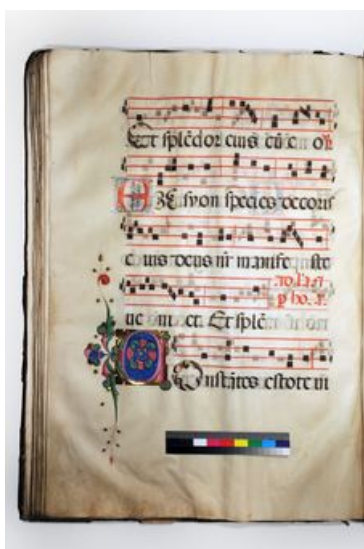 Et splēdor eius
Ex syon species decoris
eius deus nr̄ manifeste
ueniet. Et splē
Constātes estote ui